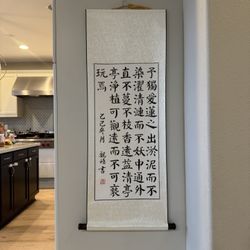 予獨愛蓮之出淤泥而不
染濯清漣而不妖中通外
直不蔓不枝香遠益清亭
亭淨植可觀遠而不可褻
玩焉
乙巳年 月 書